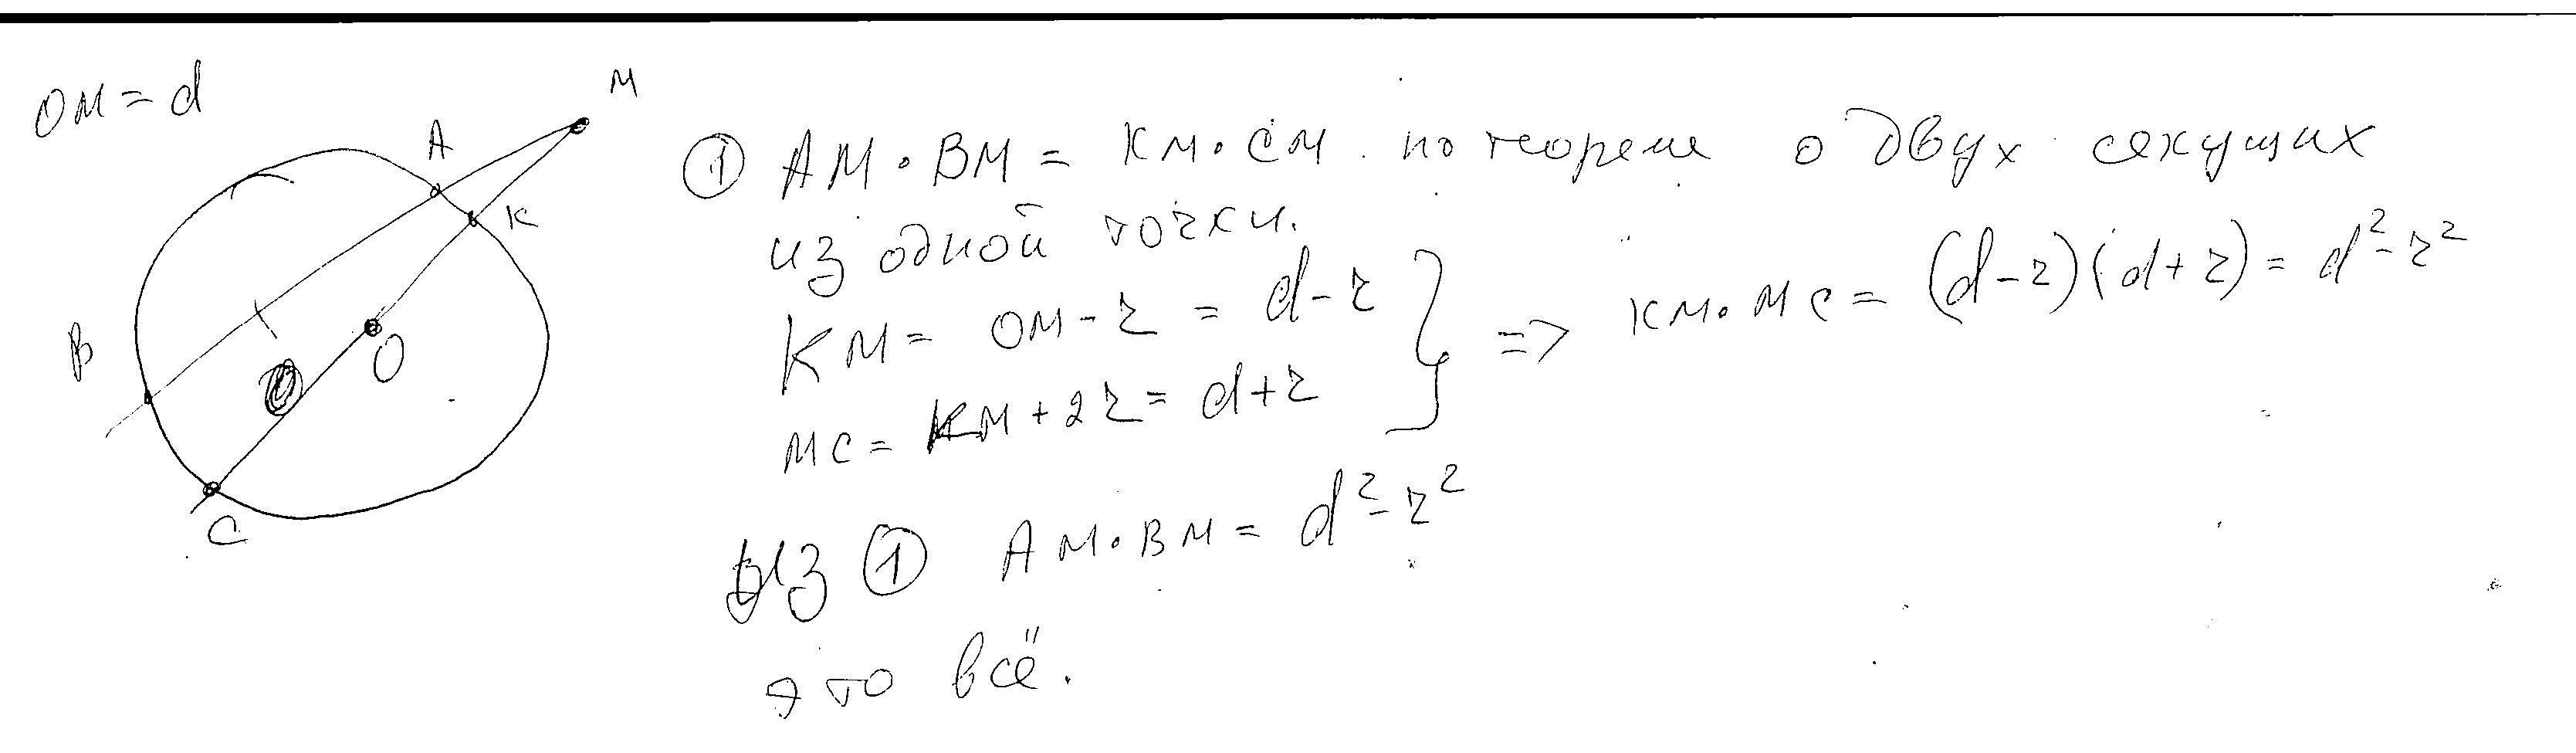 OM = d
M
A
K
B
O
C
① AM · BM = KM · CM по теореме о двух секущих
из одной точки.
KM = OM - r = d - r
MC = KM + 2r = d + r
} => KM · MC = (d - r)(d + r) = d² - r²
Из ① AM · BM = d² - r²
это всё.